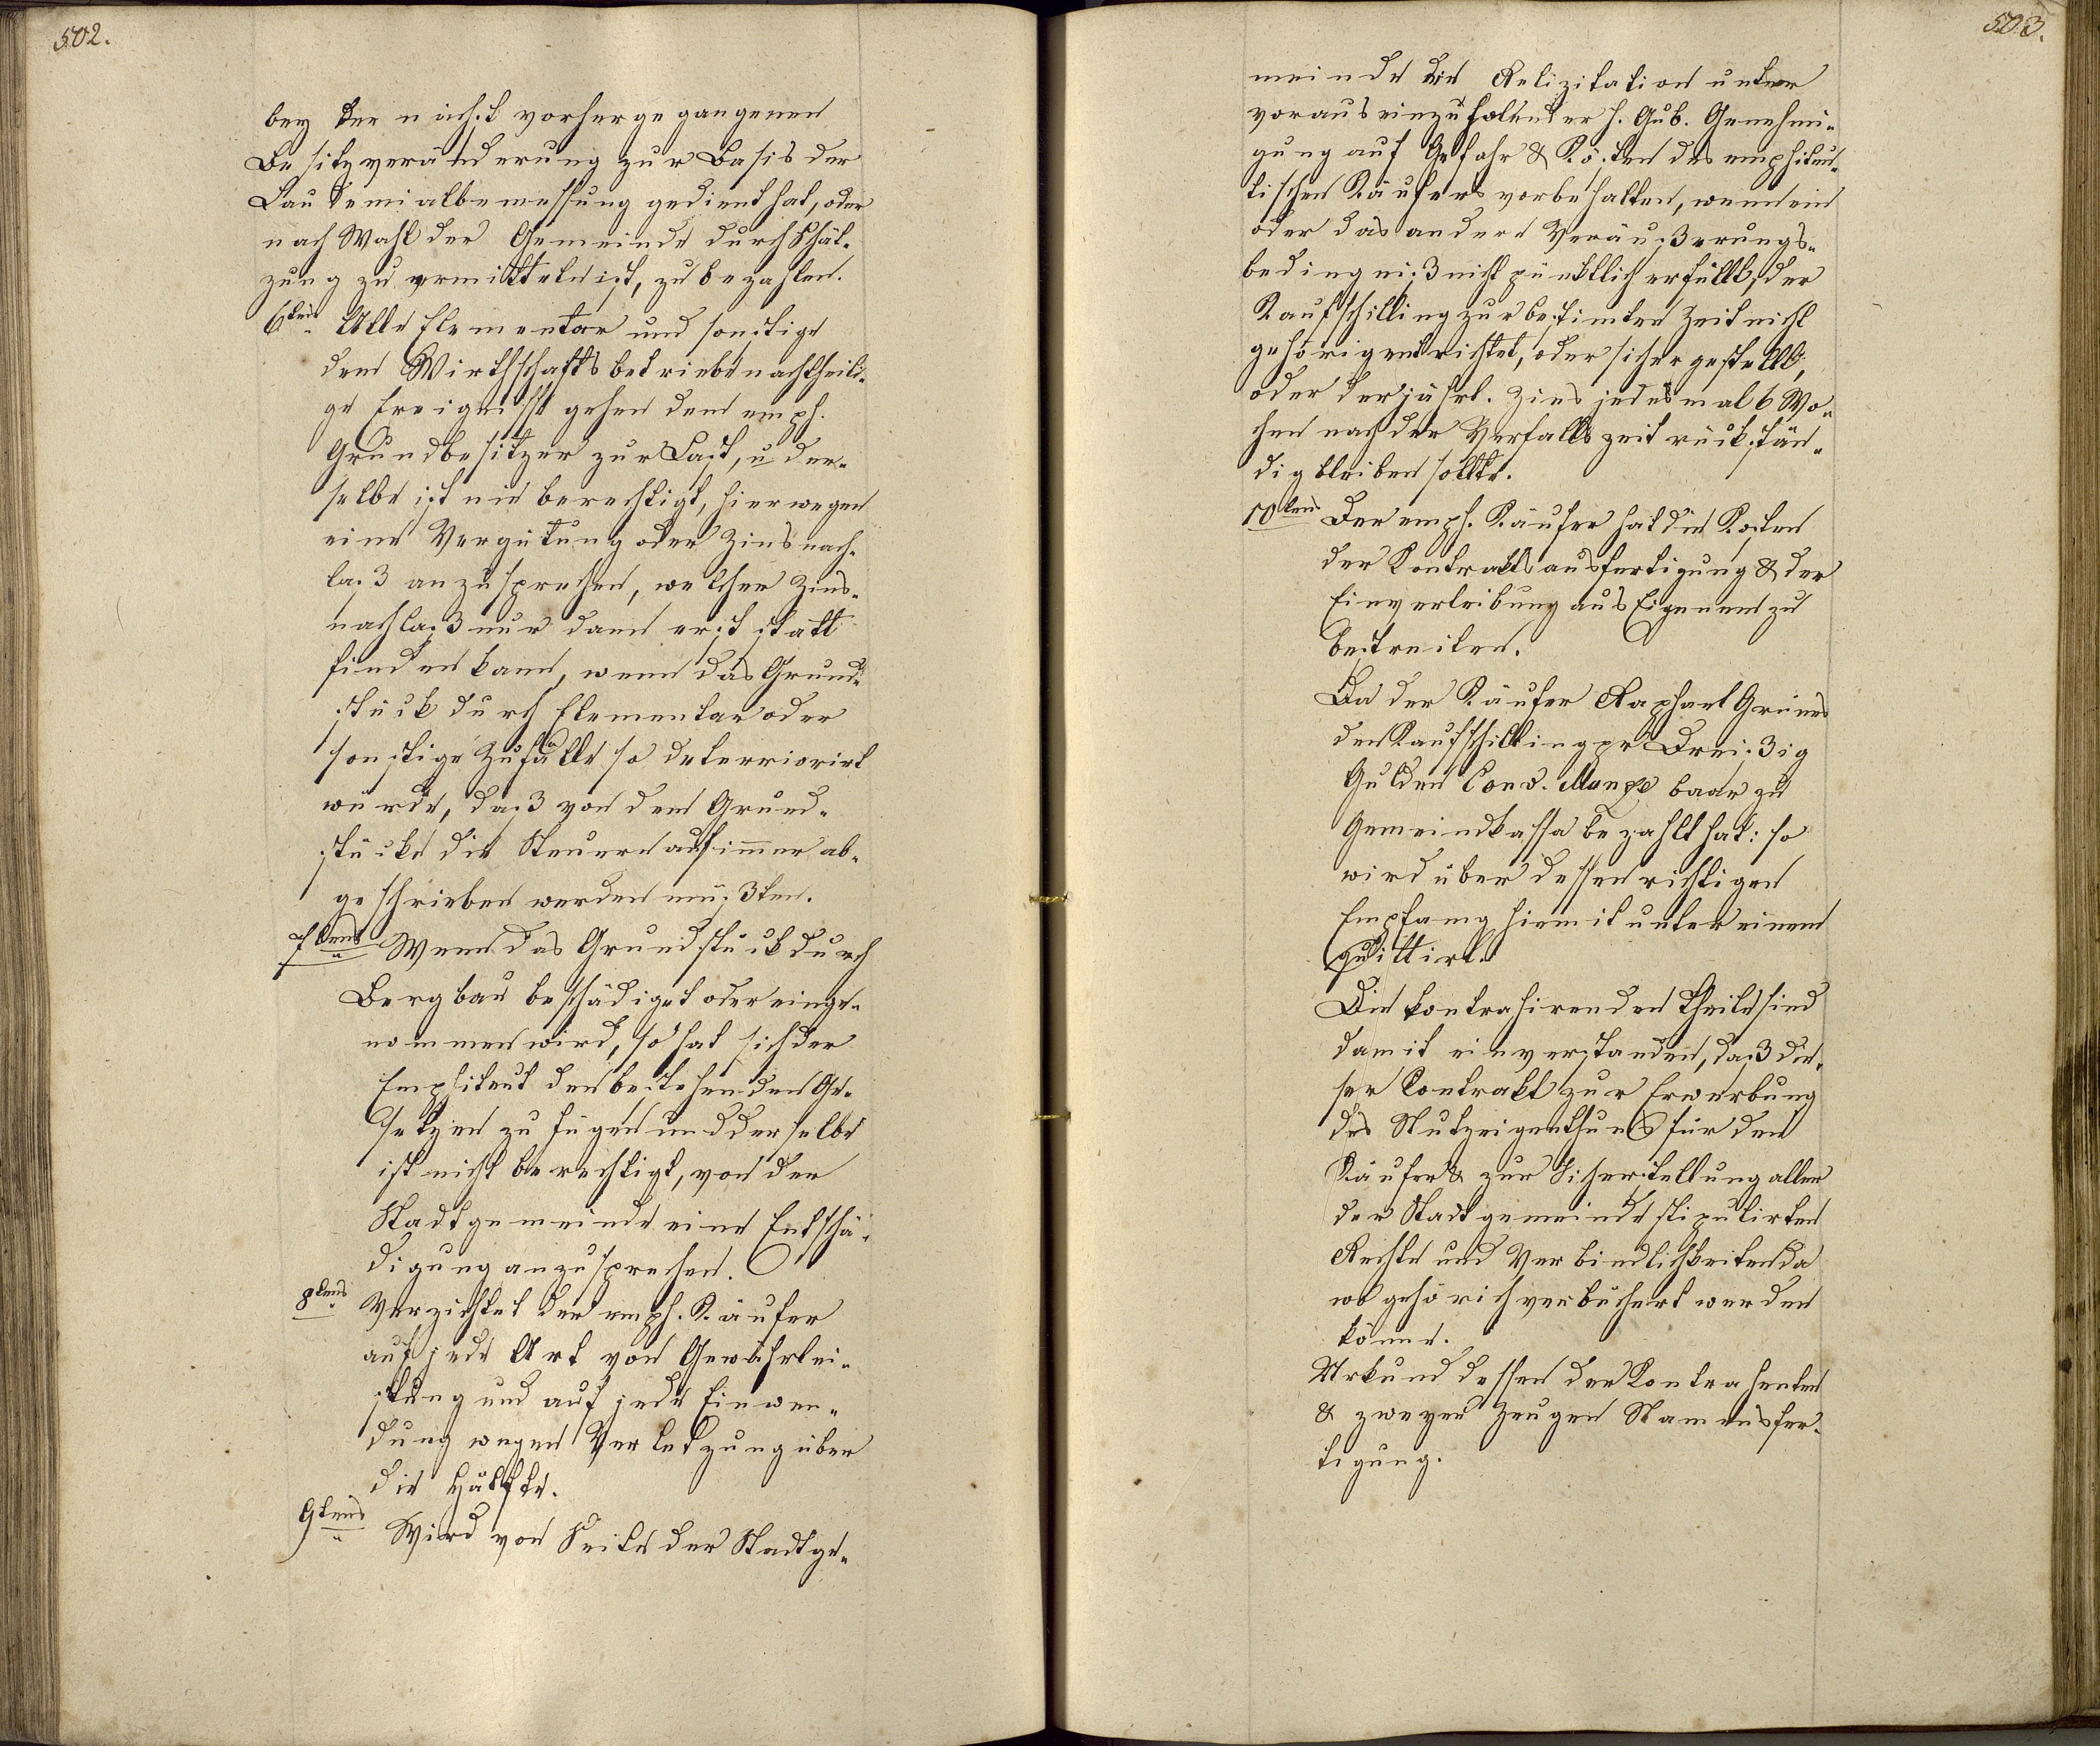 502.
bey der nächst vorhergegangenen
Besitzveränderung zur Basis der
Laudemialbemessung gedient hat, oder
nach Wahl der Gemeinde durch Schät-
zung zu vermitteln ist, zu bezahlen.
6tens Alle Elementar und sonstige
dem Wirthschaftsbetriebe nachtheili-
ge Ereignisse gehen dem emph.
Grundbesitzer zur Last, u der-
selbe ist nie berechtigt, hierwegen
eine Vergütung oder Zinsnach-
laß anzusprechen, welcher Zins-
nachlaß nur dann erst statt
finden kann, wenn das Grund-
stück durch Elementar oder
sonstige Zufälle so deterriorirt
würde, daß von dem Grund-
stücke die Steuern auf immer ab-
geschrieben werden müßten.
7tens Wenn das Grundstück durch
Bergbau beschädiget oder einge-
nommen wird, so hat sich der
Emphiteut den bestehenden Ge-
setzen zu fügen und derselbe
ist nicht berechtigt, von der
Stadtgemeinde eine Entschä-
digung anzusprechen.
8tens Verzichtet der emph. Käufer
auf jede Art von Gewährlei-
stung und auf jede Einwen-
dung wegen Verletzung über
die Hälfte.
9tens Wird von Seite der Stadtge-
503.
meinde die Relizitation unter
voraus einzuholender h. Gub. Genehmi-
gung auf Gefahr & Kösten des emphiteu-
tischen Käufers vorbehalten, wenn ein
oder das andere Veräußerungs-
bedingniß nicht pünktlich erfüllt, der
Kaufschilling zur bestimten Zeit nicht
gehörig entrichtet, oder sichergestellt,
oder der jährl. Zins jedesmal 6 Wo-
chen nach der Verfallszeit rückstän-
dig bleiben sollte.
10tens Der emph. Käufer hat die Kosten
der Kontraktsausfertigung & der
Einverleibung aus Eigenem zu
bestreiten.
Da der Käufer Raphael Grünes
den Kaufschilling pr Dreißig
Gulden Conv. Munze baar zu
Gemeindkassa bezahlt hat: so
wird über dessen richtigen
Empfang hiemit unter einem
quittirt.
Die kontrahirenden Theile sind
damit einverstanden, daß die-
ser Contrakt zur Erwerbung
des Nutzeigenthums für den
Käufer & zur Sicherstellung aller
der Stadtgemeinde stipulirten
Rechte und Verbindlichkeiten da
wo gehörich verbüchert werden
könne.
Urkund dessen der Kontrahenten
& zweyer Zeugen Namensfer-
tigung.